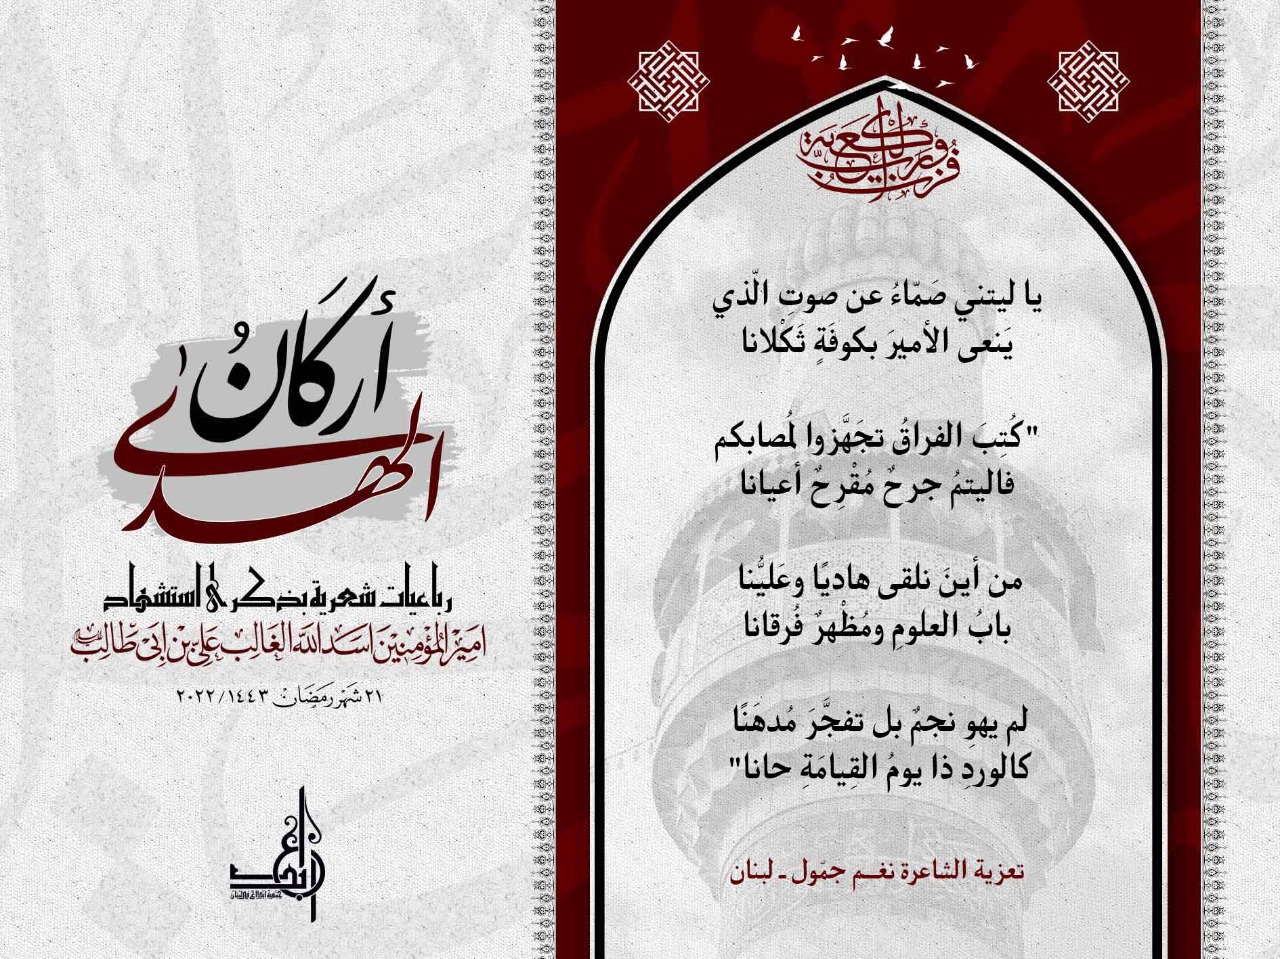 فزت ورب الكعبة
يا ليتني صَمّاءُ عن صوتِ الّذي
يَنعى الأميرَ بكوفَةٍ ثَكْلانا
"كُتِبَ الفراقُ تجَهَّزوا لمُصابكم
فاليتمُ جرحٌ مُقْرِحٌ أعيانا
من أينَ نلقى هاديًا وعَليُّنا
بابُ العلومِ ومُظْهرٌ فُرقانا
لم يهوِ نجمٌ بل تفجَّرَ مُدهَنًا
كالوردِ ذا يومُ القِيامَةِ حانا"
تعزية الشاعرة نغم جمّول - لبنان
أركانُ
الهدى
رباعيات شعرية بذكرى استشهاد
اميْر المُؤمِنِيْنَ اسَدِ اللهَ الغَالِبِ عَليّ بْن اَبيْ طَالِبْ
٢١ شَهْر رَمَضَانْ ١٤٤٣/٢٠٢٢